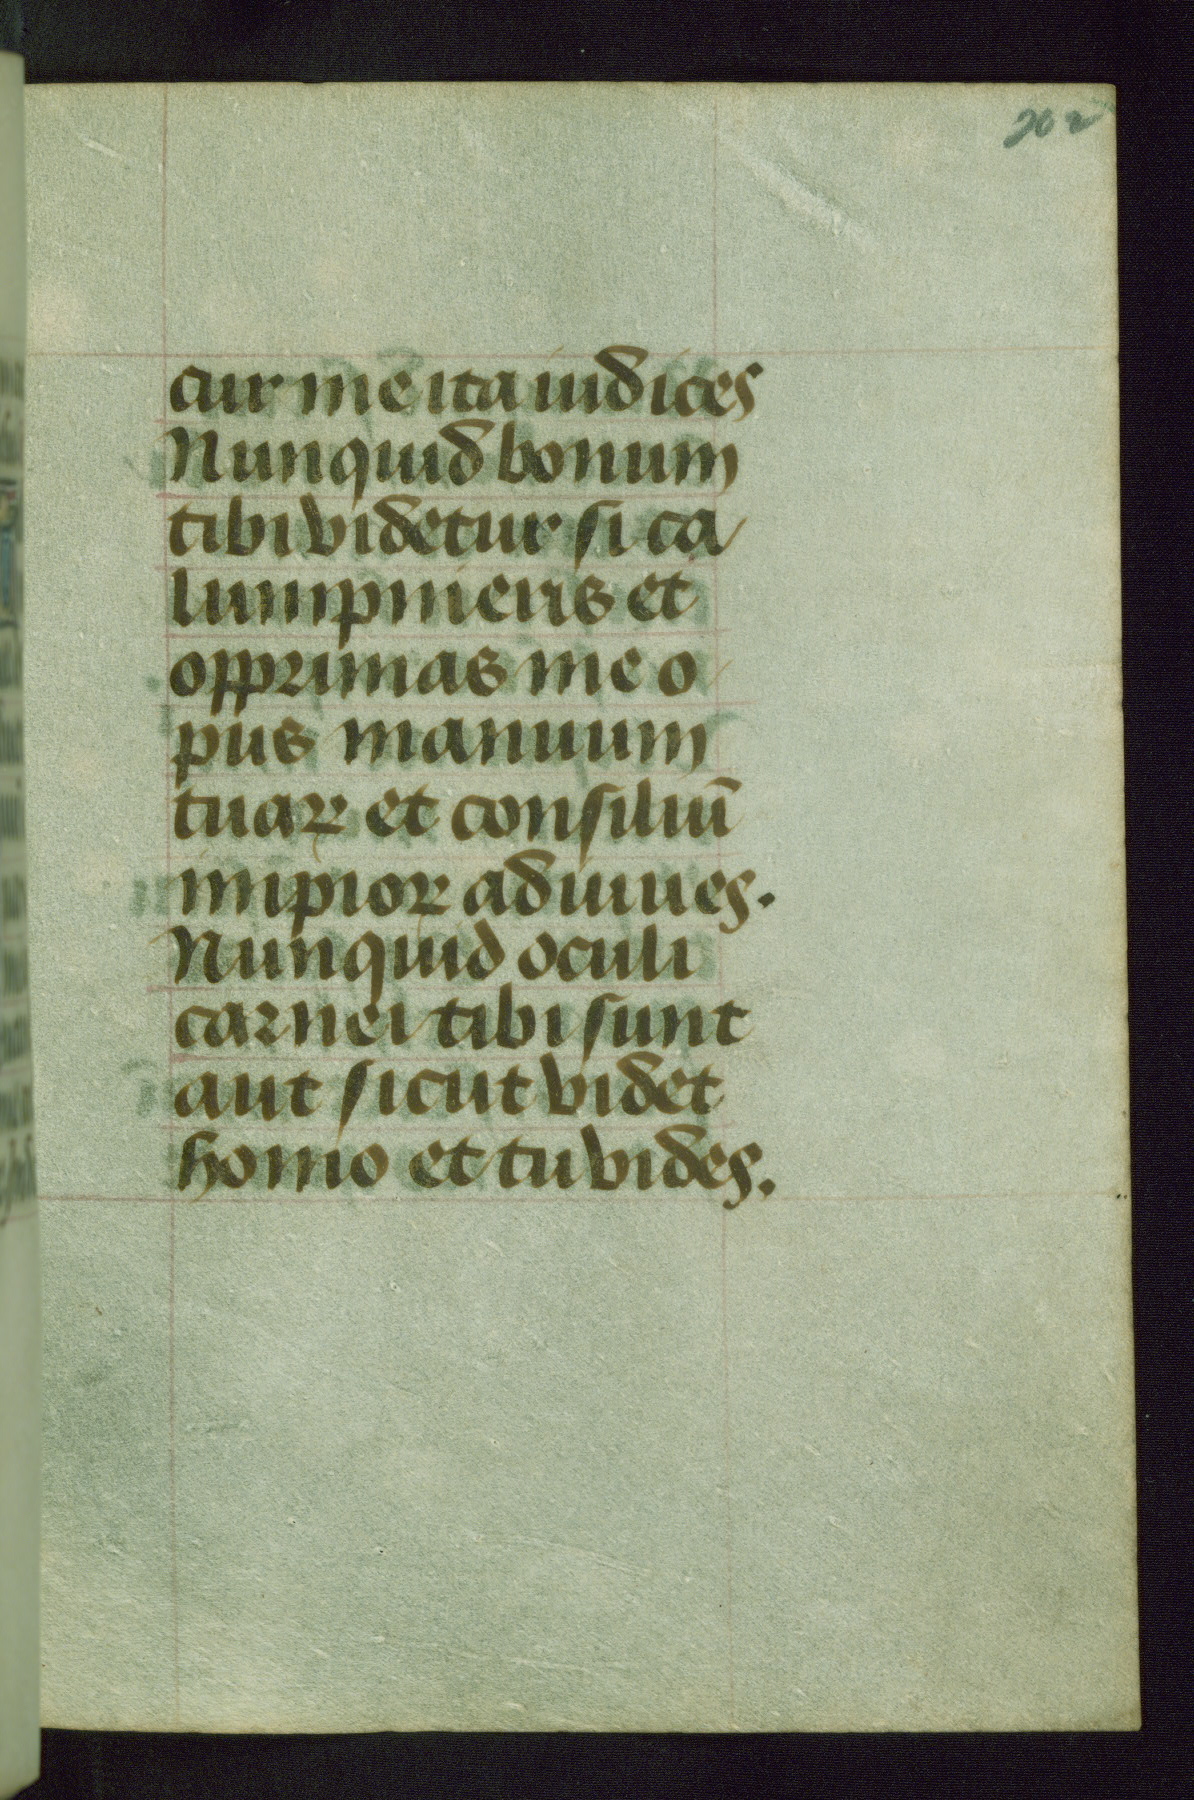 202
cur me ita iudices
Nunquid bonum
tibi videtur si ca
lumpnieris et
opprimas me o
pus manuum
tuaꝝ et consiliū
impioꝝ adiuues.
Nunquid oculi
carnei tibi sunt
aut sicut videt
homo et tu vides.